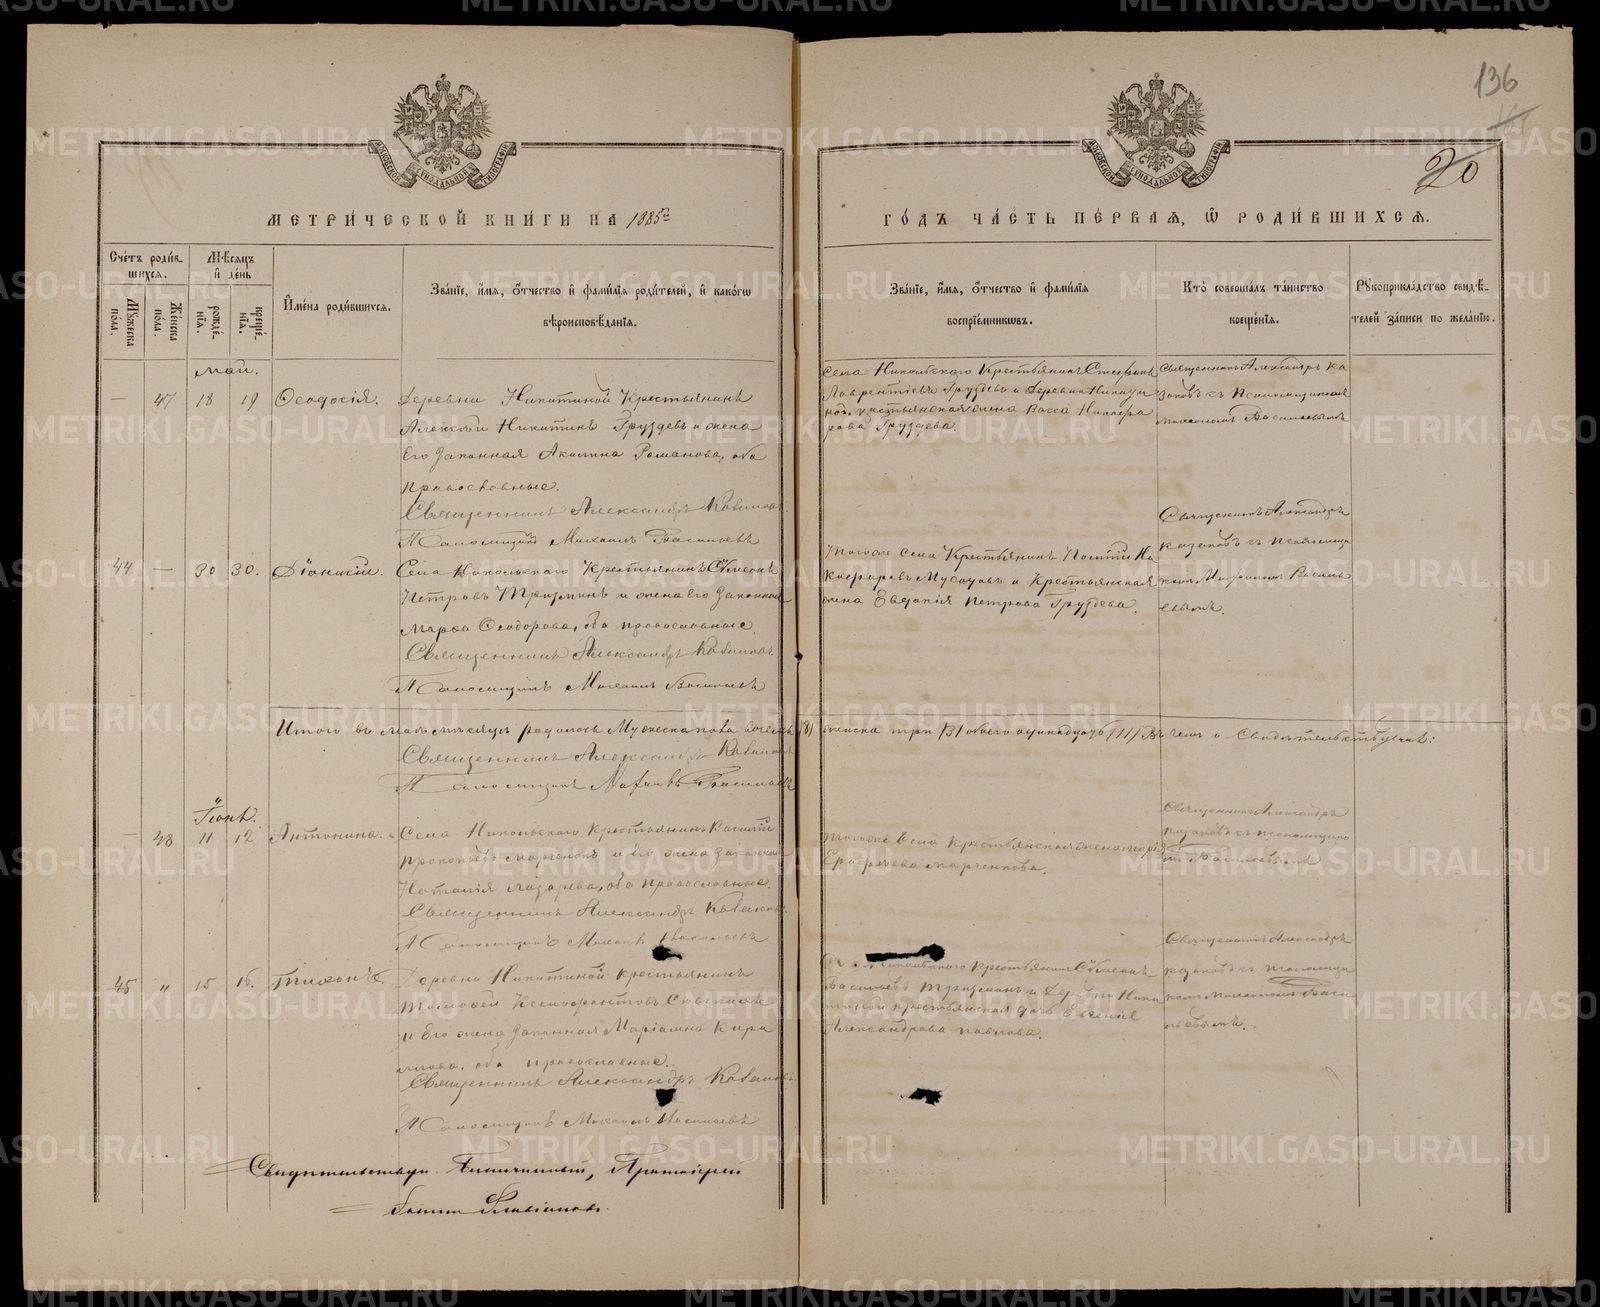 136
20
МЕТРИЧЕСКОЙ КНИГИ НА 1885й
ГОДЪ ЧАСТЬ ПЕРВАЯ, Ѡ РОДИВШИХСЯ.
Счетъ родившихся.
Мужеска пола.
Женска пола.
Мѣсяцъ и день
рожденія.
крещенія.
Имена родившихся.
Званіе, имя, отчество и фамилія родителей, и какогѡ
вѣроисповѣданія.
Званіе, имя, отчество и фамилія
воспріемникѡвъ.
Кто совершалъ таинство
крещенія.
Рукоприкладство свидѣтелей записи по желанію.
Май.
— 47 18 19 Ѳеодосія.
Деревни Никитиной Крестьянинъ
Алексѣй Никитинъ Груздевъ и жена
Его законная Акилина Романова, оба
православные.
Священникъ Александръ Казаковъ
Псаломщикъ Михаилъ Васильевъ
Села Никольскаго Крестьянинъ Стефанъ
Лаврентіевъ Груздевъ и деревни Никити
ной крестьянская жена Васса Никифо
рова Груздева.
Священникъ Александръ Ка
заковъ съ Псаломщикомъ
Михаиломъ Васильевымъ
44 — 30 30. Діонисій.
Села Никольскаго Крестьянинъ Сѵмеонъ
Петровъ и жена Его законная
Марѳа Ѳеодорова, оба православные.
Священникъ Александръ Казаковъ
Псаломщикъ Михаилъ Васильевъ
Тогоже Села Крестьянинъ
и Крестьянская
жена Евдокія Петрова Груздева.
Священникъ Александръ
Казаковъ съ Псаломщи
комъ Михаиломъ Василь
евымъ.
Итого въ маѣ мѣсяцѣ родилось Мужеска пола восемь /8/ женска три /3/ обоего одинадцать /11/ Въ чемъ и Свидѣтельствуемъ:
Священникъ Александръ Казаковъ
Псаломщикъ Михаилъ Васильевъ
Іюнь.
— 48 11 12 Антонина.
Села Никольскаго Крестьянинъ Василій
Прокопьевъ и его жена законная
Наталія Лазарева, оба православные.
Священникъ Александръ Казаковъ
Псаломщикъ Михаилъ Васильевъ
Тогоже Села Крестьянская жена
Священникъ Александръ
Казаковъ съ псаломщико
мъ Васильевымъ
45 " 15 16. Тихонъ.
Деревни Никитиной крестьянинъ
Тимоѳей Ксенофонтовъ
и Его жена законная Маріамна Кири
ллова, оба православные.
Священникъ Александръ Казаковъ
Псаломщикъ Михаилъ Васильевъ
Никольскаго Крестьянинъ Сѵмеонъ
Васильевъ и Деревни Ники
тиной крестьянская дочь Евгенія
Александрова Павлова.
Священникъ Александръ
Казаковъ съ псаломщи
комъ Михаиломъ Васи
льевымъ.
Свидѣтельствую. Благочинный, Протоіерей
METRIKI.GASO-URAL.RU